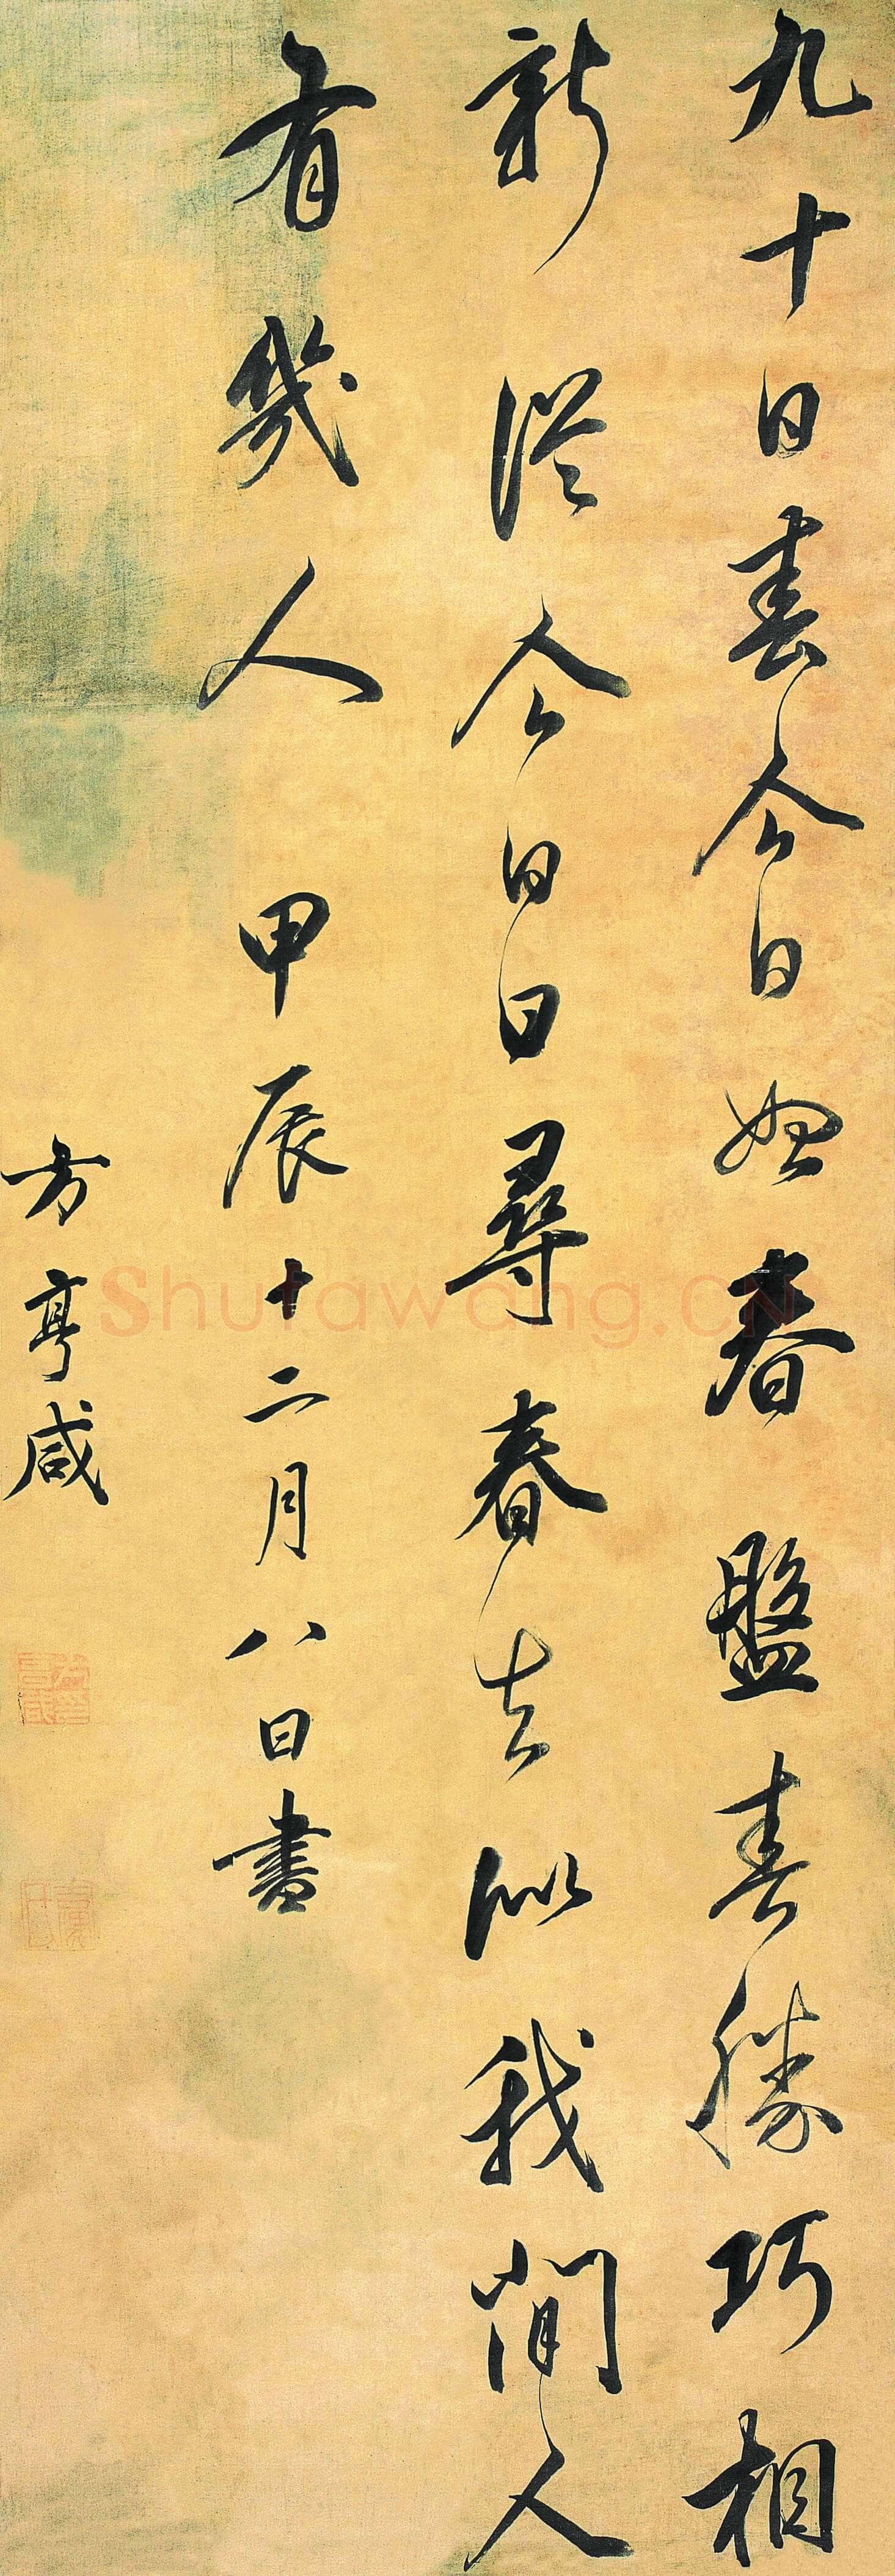 九十日春今日始春盤春勝巧相
新從今日日尋春去似我閒人
有幾人甲辰十二月八日書
方亨咸
Shufawang.CN